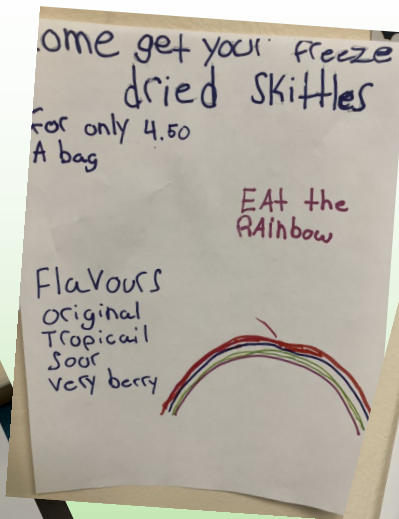 ome get your freeze
dried skittles
for only 4.50
A bag
EAt the
RAinbow
Flavours
original
Tropicail
sour
very berry